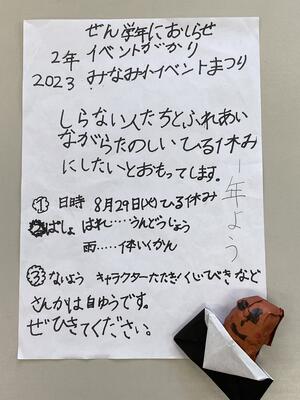 ぜん学年におしらせ
2年 イベントがかり
2023 みなみイベントまつり
しらない人たちとふれあい
ながらたのしいひる休み
にしたいとおもてます。
① 日時 8月29日(火)ひる休み
②ばしょ はれ……うんどうじょう
雨……体いくかん
③ないよう キャラクターたたき/くじ・てびきなど
さんかは自ゆうです。
ぜひきてください。
1年よう